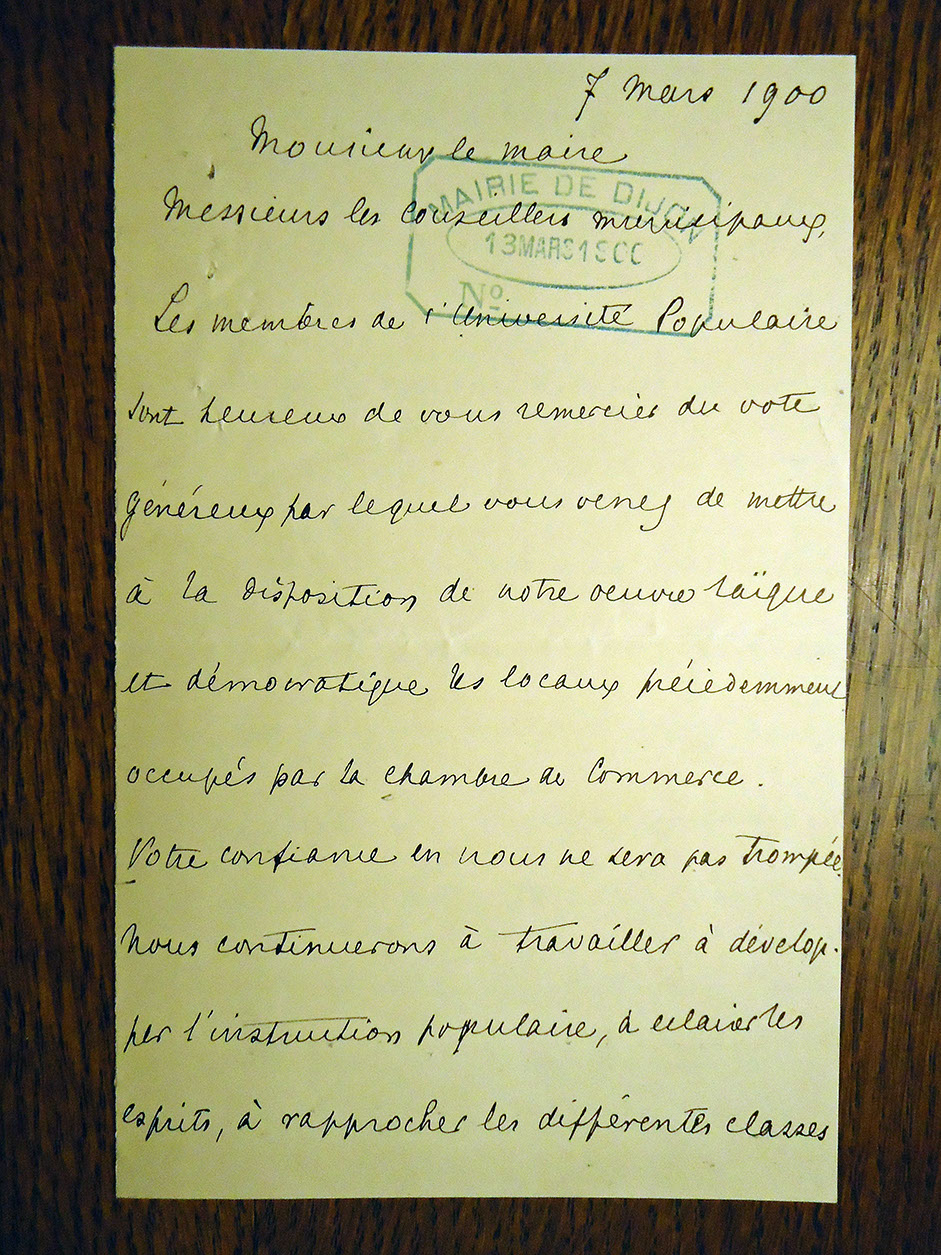 7 Mars 1900
Monsieur le maire
MAIRIE DE DIJON
Messieurs les Conseillers municipaux,
13 MARS 1900
No
Les membres de l'Université Populaire
sont heureux de vous remercier du vote
généreux par lequel vous venez de mettre
à la disposition de notre oeuvre laïque
et démocratique les locaux précédemment
occupés par la chambre de Commerce.
Votre confiance en nous ne sera pas trompée.
Nous continuerons à travailler à dévelop-
per l'instruction populaire, à éclairer les
esprits, à rapprocher les différentes classes